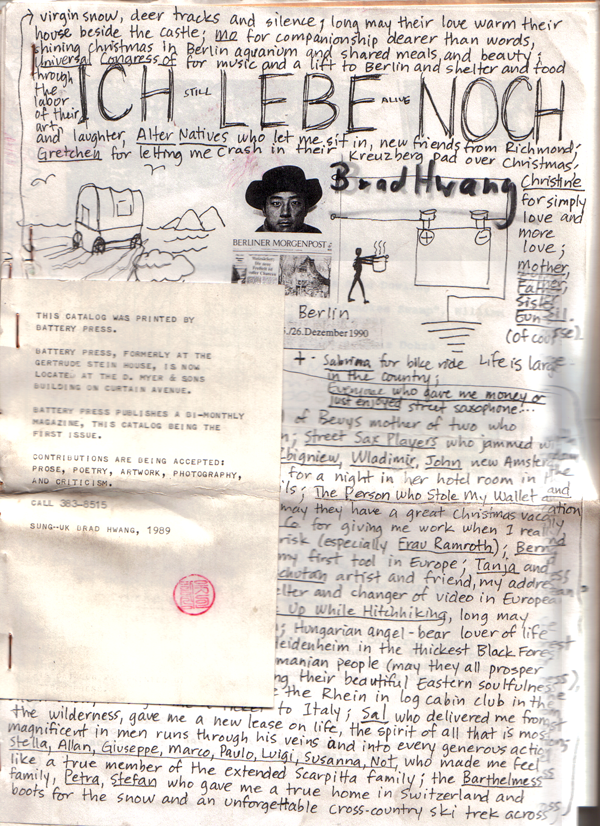 virgin snow, deer tracks and silence; long may their love warm their
house beside the castle; Mo for companionship dearer than words,
shining christmas in Berlin aquarium and shared meals, and beauty;
Universal Congress of for music and a lift to Berlin and shelter and food
through
the
labor
of their
art
ICH STILL LEBE ALIVE NOCH
and laughter, Alter Natives who let me sit in, new friends from Richmond;
Gretchen for letting me crash in their Kreuzberg pad over Christmas,
Brad Hwang
Christine
for simply
love and
more
love;
mother,
Father,
Sister
Eun-Sil.
(of course).
BERLINER MORGENPOST
Berlin
./26.Dezember 1990
+
-
THIS CATALOG WAS PRINTED BY
BATTERY PRESS.
BATTERY PRESS, FORMERLY AT THE
GERTRUDE STEIN HOUSE, IS NOW
LOCATE AT THE D. MYER & SONS
BUILDING ON CURTAIN AVENUE.
BATTERY PRESS PUBLISHES A BI-MONTHLY
MAGAZINE, THIS CATALOG BEING THE
FIRST ISSUE.
CONTRIBUTIONS ARE BEING ACCEPTED:
PROSE, POETRY, ARTWORK, PHOTOGRAPHY,
AND CRITICISM.
CALL 383-8515
SUNG-UK BRAD HWANG, 1989
+ - Sabrina for bike ride Life is large
in the country;
Everyone who gave me money or
just enjoyed street saxophone...
of Bewys mother of two who
; Street Sax Players who jammed
Zbigniew, Wladimir, John new Amsterdam
for a night in her hotel room in the
ils; The Person Who Stole My Wallet and
may they have a great Christmas vacation
Co for giving me work when I really
risk (especially Frau Ramroth); Bern
my first tool in Europe; Tanja and
chutan artist and friend, my address
elter and changer of video in Europe
Up While Hitchhiking, long may
; Hungarian angel-bear lover of life
eidenheim in the thickest Black Forest
manian people (may they all prosper
ng their beautiful Eastern soulfulness),
e the Rhein in log cabin club in the
to Italy; Sal who delivered me from
the wilderness, gave me a new lease on life, the spirit of all that is most
magnificent in men runs through his veins and into every generous action
Stella, Allan, Giuseppe, Marco, Paulo, Luigi, Susanna, Not, who made me feel
like a true member of the extended Scarpitta family; the Barthelmess
family, Petra, Stefan who gave me a true home in Switzerland and
boots for the snow and an unforgettable cross-country ski trek across